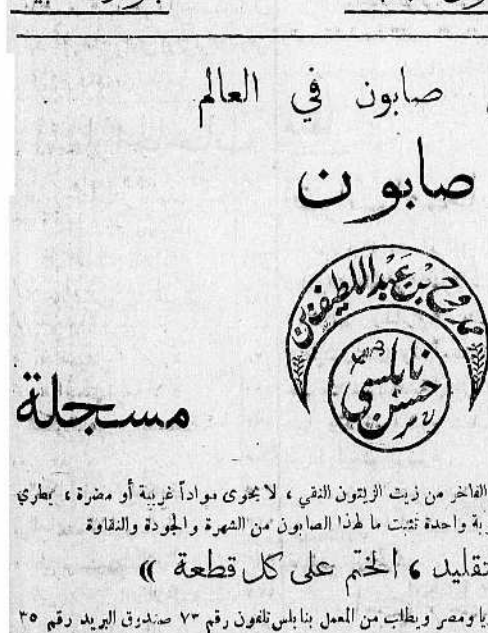 صابون في العالم
صابون
ممدوح بن عبد اللطيف بن
حسن نابلسي
مسجلة
الفاخر من زيت الزيتون النقي ، لا يحوى مواداً غريبة أو مضرة ، يطري
واحدة تثبت ما لهذا الصابون من الشهرة والجودة والنقاوة
تقليد ، الختم على كل قطعة »
ومصر ويطلب من المعمل بنابلس تلفون رقم ٧٣ صندوق البريد رقم ٣٥